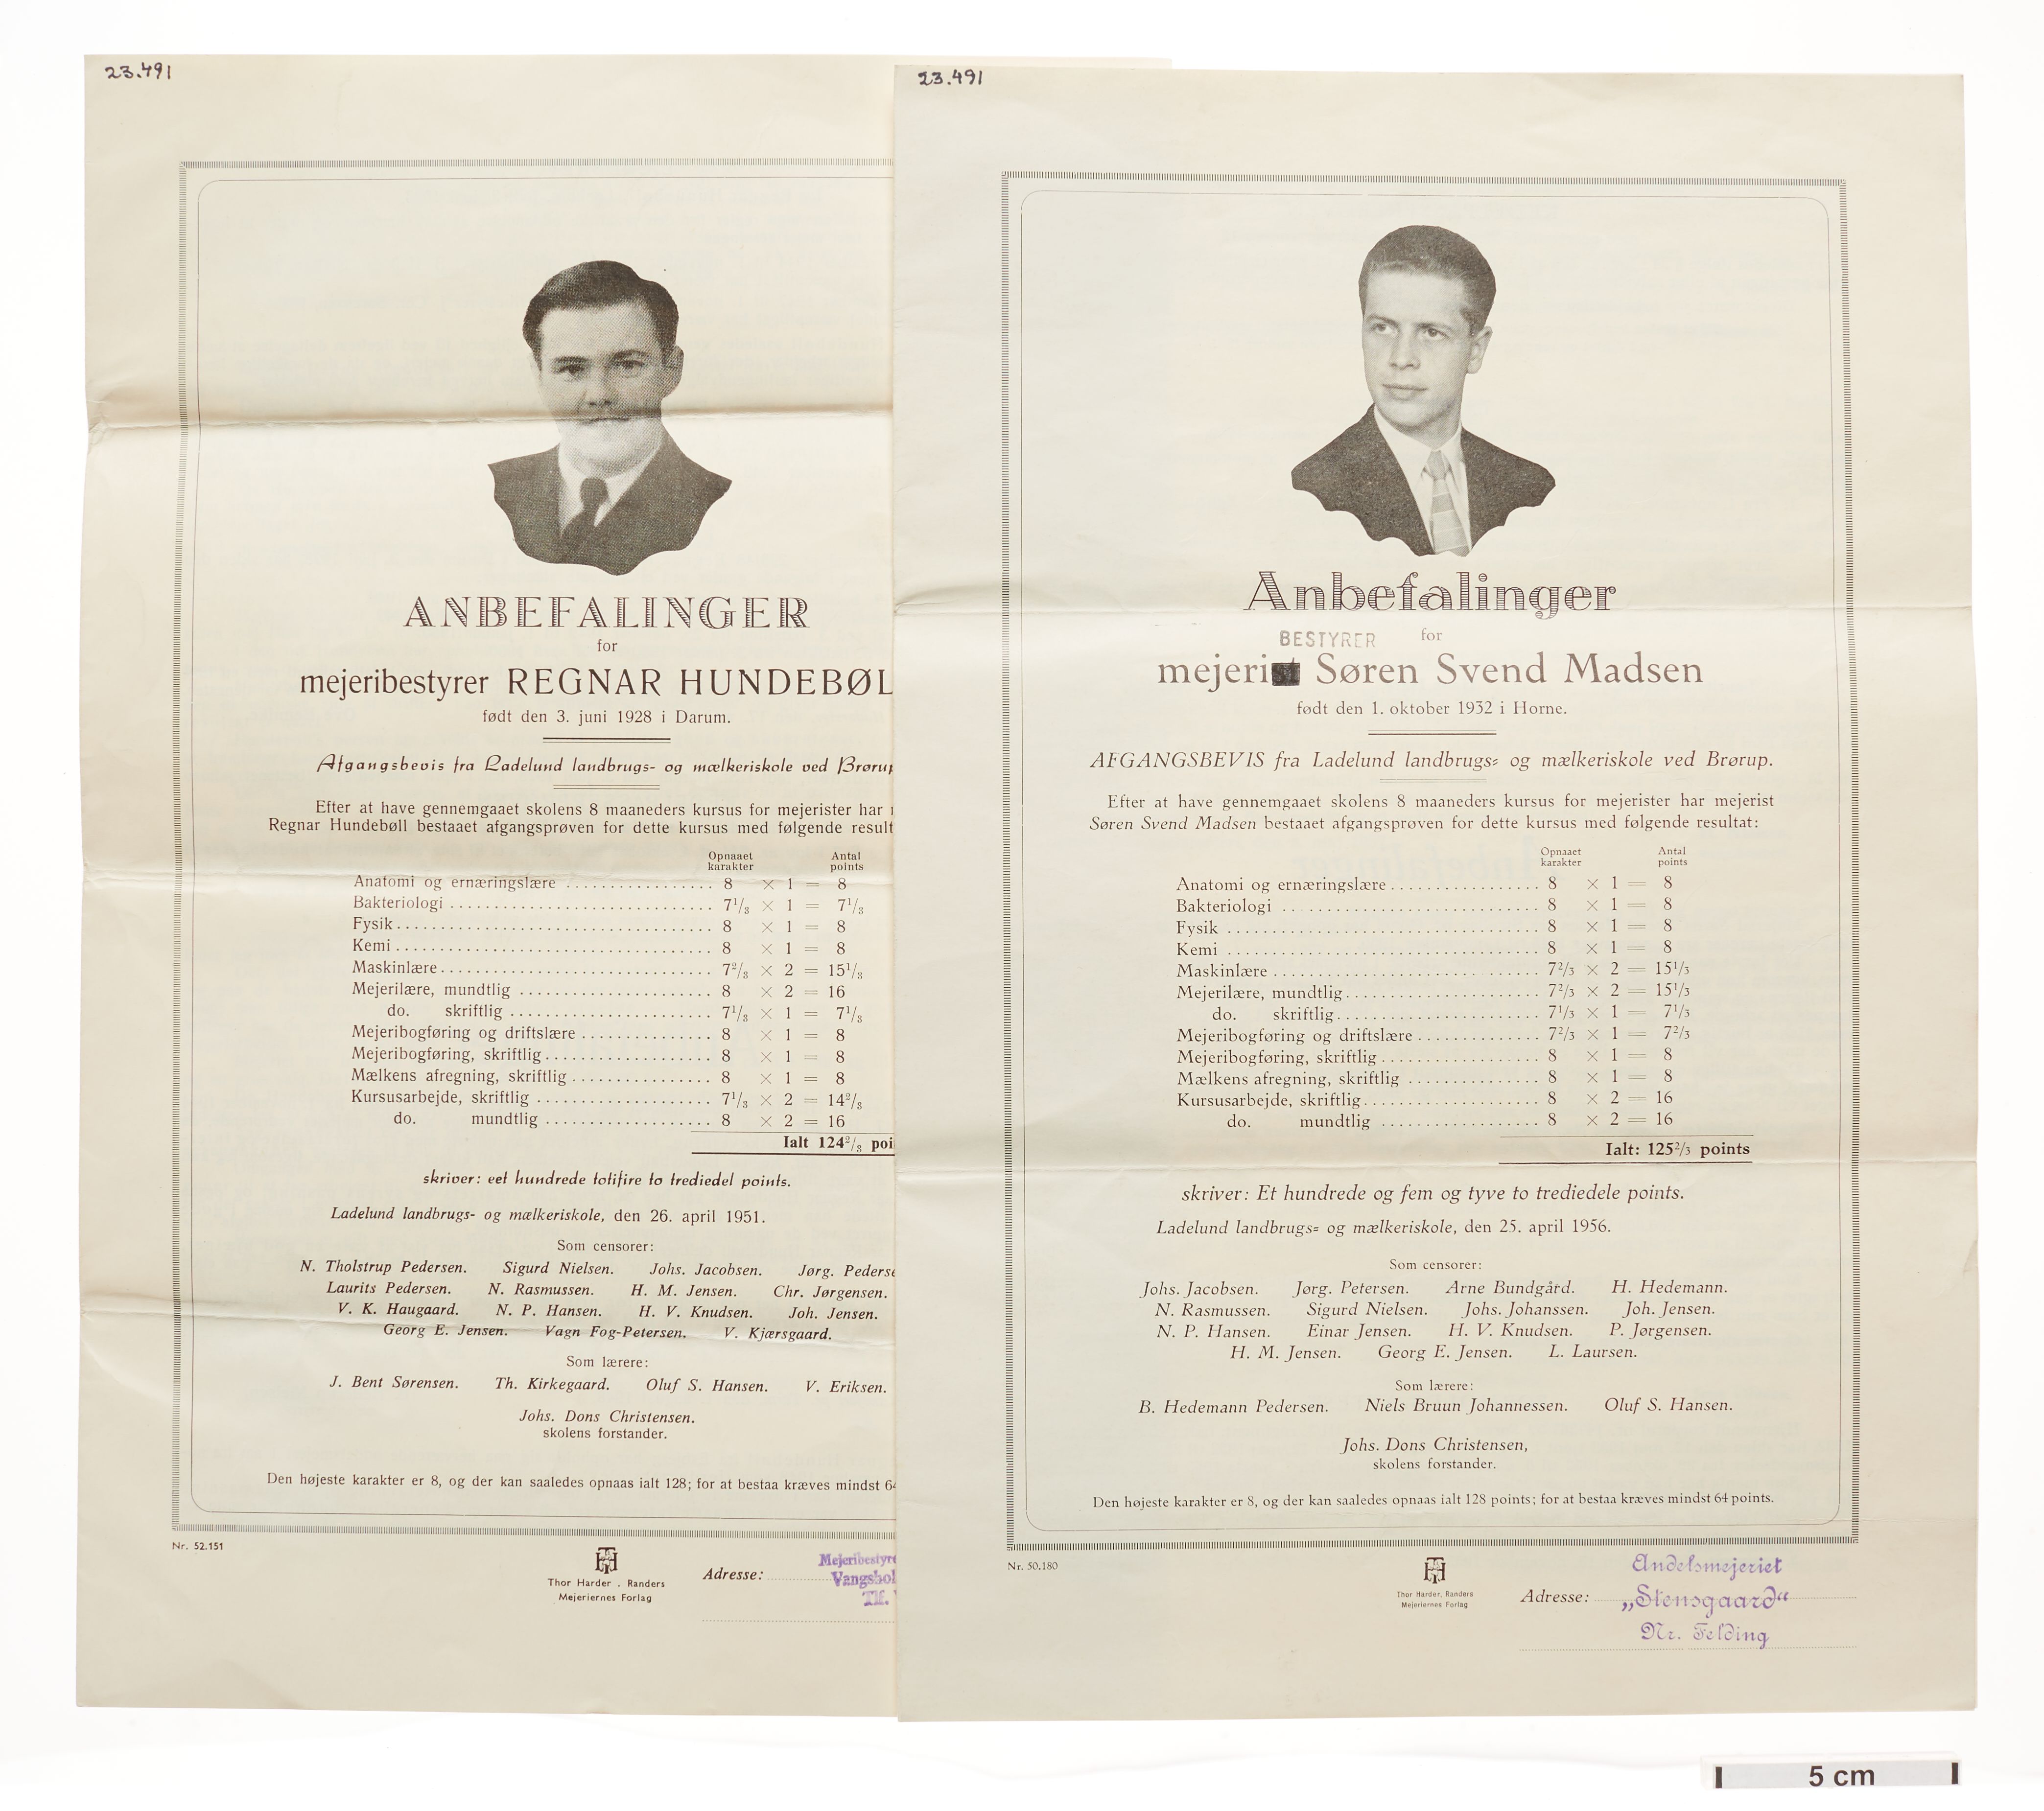 23.491
ANBEFALINGER
for
mejeribestyrer REGNAR HUNDEBØL
født den 3. juni 1928 i Darum.
Afgangsbevis fra Ladelund landbrugs- og mælkeriskole ved Brørup
Efter at have gennemgaaet skolens 8 maaneders kursus for mejerister har
Regnar Hundebøll bestaaet afgangsprøven for dette kursus med følgende result
Opnaaet Antal
karakter points
Anatomi og ernæringslære 8 × 1 = 8
Bakteriologi 7 1/3 × 1 = 7 1/3
Fysik 8 × 1 = 8
Kemi 8 × 1 = 8
Maskinlære 7 2/3 × 2 = 15 1/3
Mejerilære, mundtlig 8 × 2 = 16
do. skriftlig 7 1/3 × 1 = 7 1/3
Mejeribogføring og driftslære 8 × 1 = 8
Mejeribogføring, skriftlig 8 × 1 = 8
Mælkens afregning, skriftlig 8 × 1 = 8
Kursusarbejde, skriftlig 7 1/3 × 2 = 14 2/3
do. mundtlig 8 × 2 = 16
Ialt 124 2/3 poi
skriver: eet hundrede totifire to trediedel points.
Ladelund landbrugs- og mælkeriskole, den 26. april 1951.
Som censorer:
N. Tholstrup Pedersen. Sigurd Nielsen. Johs. Jacobsen. Jørg. Peders
Laurits Pedersen. N. Rasmussen. H. M. Jensen. Chr. Jørgensen.
V. K. Haugaard. N. P. Hansen. H. V. Knudsen. Joh. Jensen.
Georg E. Jensen. Vagn Fog-Petersen. V. Kjærsgaard.
Som lærere:
J. Bent Sørensen. Th. Kirkegaard. Oluf S. Hansen. V. Eriksen.
Johs. Dons Christensen.
skolens forstander.
Den højeste karakter er 8, og der kan saaledes opnaas ialt 128; for at bestaa kræves mindst 64
Nr. 52.151
Thor Harder . Randers
Mejeriernes Forlag
Adresse:
Mejeribestyre
Vangshol
Tlf.
23.491
Anbefalinger
BESTYRER for
mejerist Søren Svend Madsen
født den 1. oktober 1932 i Horne.
AFGANGSBEVIS fra Ladelund landbrugs- og mælkeriskole ved Brørup.
Efter at have gennemgaaet skolens 8 maaneders kursus for mejerister har mejerist
Søren Svend Madsen bestaaet afgangsprøven for dette kursus med følgende resultat:
Opnaaet Antal
karakter points
Anatomi og ernæringslære 8 × 1 = 8
Bakteriologi 8 × 1 = 8
Fysik 8 × 1 = 8
Kemi 8 × 1 = 8
Maskinlære 7 2/3 × 2 = 15 1/3
Mejerilære, mundtlig 7 2/3 × 2 = 15 1/3
do. skriftlig 7 1/3 × 1 = 7 1/3
Mejeribogføring og driftslære 7 2/3 × 1 = 7 2/3
Mejeribogføring, skriftlig 8 × 1 = 8
Mælkens afregning, skriftlig 8 × 1 = 8
Kursusarbejde, skriftlig 8 × 2 = 16
do. mundtlig 8 × 2 = 16
Ialt: 125 2/3 points
skriver: Et hundrede og fem og tyve to trediedele points.
Ladelund landbrugs- og mælkeriskole, den 25. april 1956.
Som censorer:
Johs. Jacobsen. Jørg. Petersen. Arne Bundgård. H. Hedemann.
N. Rasmussen. Sigurd Nielsen. Johs. Johanssen. Joh. Jensen.
N. P. Hansen. Einar Jensen. H. V. Knudsen. P. Jørgensen.
H. M. Jensen. Georg E. Jensen. L. Laursen.
Som lærere:
B. Hedemann Pedersen. Niels Bruun Johannessen. Oluf S. Hansen.
Johs. Dons Christensen,
skolens forstander.
Den højeste karakter er 8, og der kan saaledes opnaas ialt 128 points; for at bestaa kræves mindst 64 points.
Nr. 50.180
Thor Harder, Randers
Mejeriernes Forlag
Adresse:
Andelsmejeriet
„Stensgaard“
Nr. Felding
5 cm